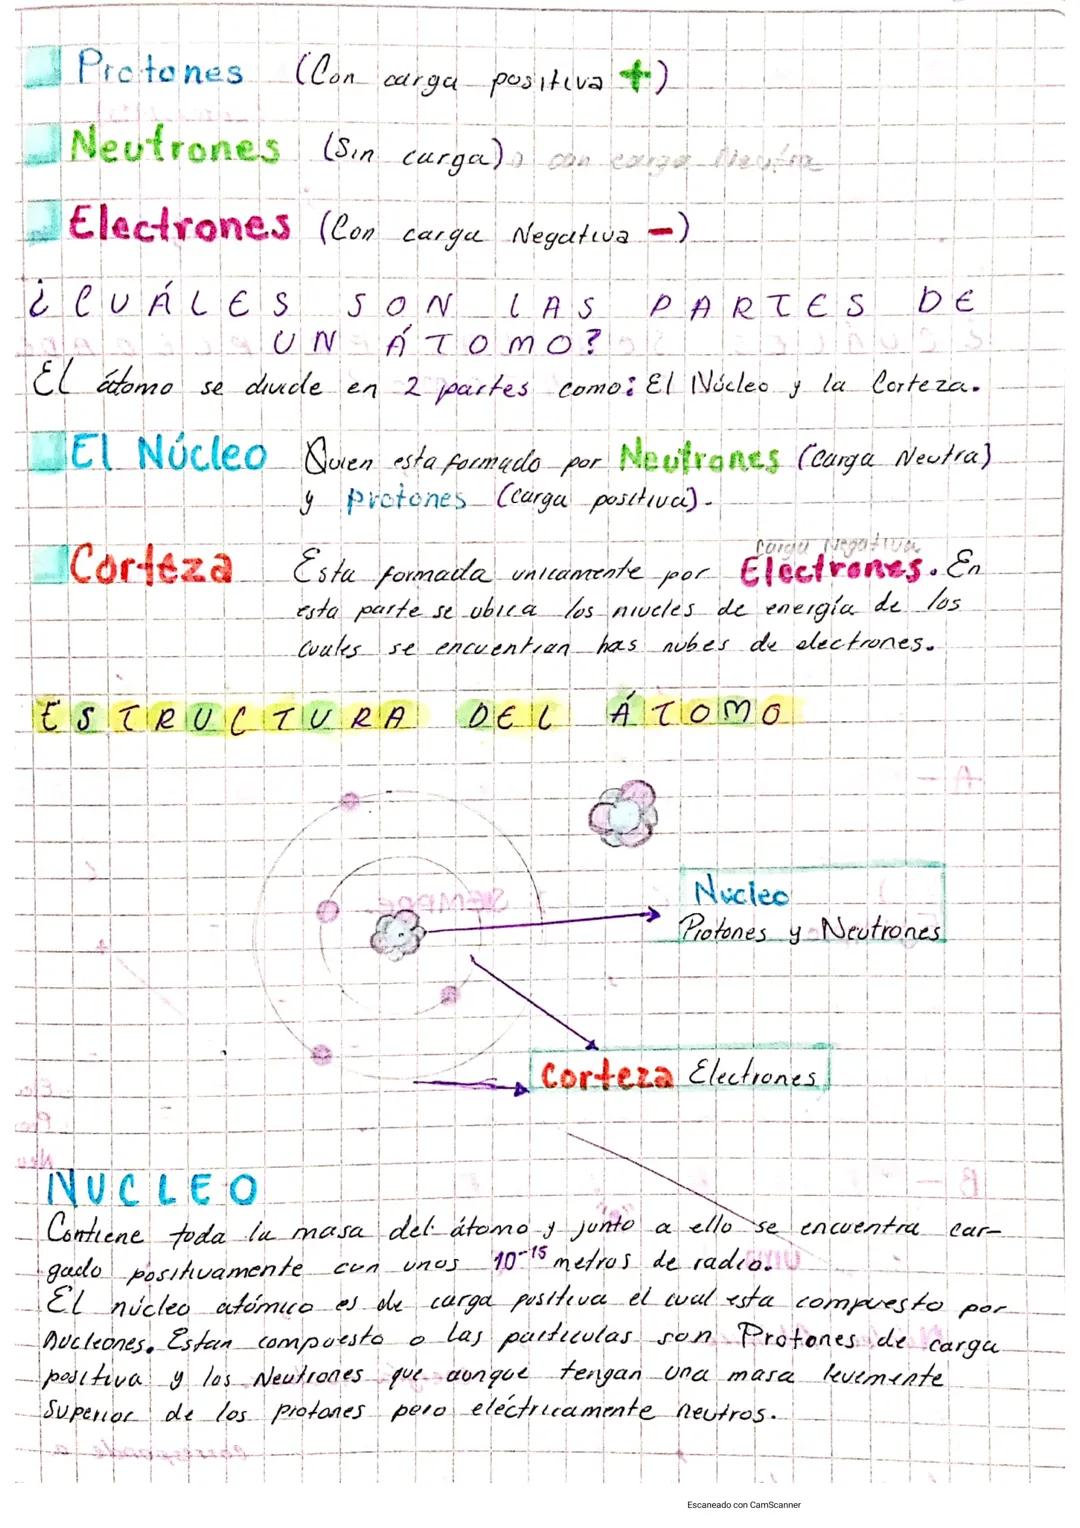 Protones (Con carga positiva +)
Neutrones (Sin carga) o con carga Neutra
Electrones (Con carga Negativa -)
¿CUÁLES SON LAS PARTES DE
UN ÁTOMO?
El átomo se divide en 2 partes como: El Núcleo y la Corteza.
El Núcleo Quien esta formado por Neutrones (Carga Neutra)
y protones (carga positiva).
Carga Negativa
Corteza Esta formada unicamente por Electrones. En
esta parte se ubica los niveles de energía de los
cuales se encuentran has nubes de electrones.
ESTRUCTURA DEL ÁTOMO
Nucleo
Protones y Neutrones
Corteza Electrones
NUCLEO
Contiene toda la masa del átomo y junto a ello se encuentra car-
gado positivamente con unos 10-15 metros de radio.
El núcleo atómico es de carga positiva el cual esta compuesto por
nucleones. Estan compuesto o las particulas son Protones de carga
positiva y los Neutrones que aunque tengan una masa levemente
Superior de los protones pero eléctricamente neutros.
Escaneado con CamScanner